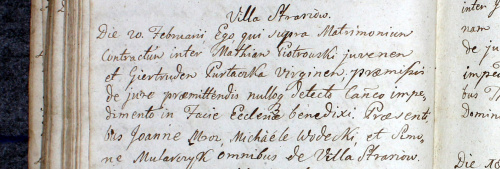 Villa Straniow.
Die 20. Februarii Ego qui supra Matrimonium
Contractũ inter Mathien Piotrowski juvenen
et Giertruden Purtacka Virginen, præmissis
de jure præmittendis nulloq detecto Cañco impe
dimento in Facie Ecclesiæ benedixi. Præsenti
bus Joanne Mroz, Michaële Wodecki, et Simo
ne Mularczyk omnibus de Villa Straniow.
inter J
nam
de ju
impe
bus
Domin
Die